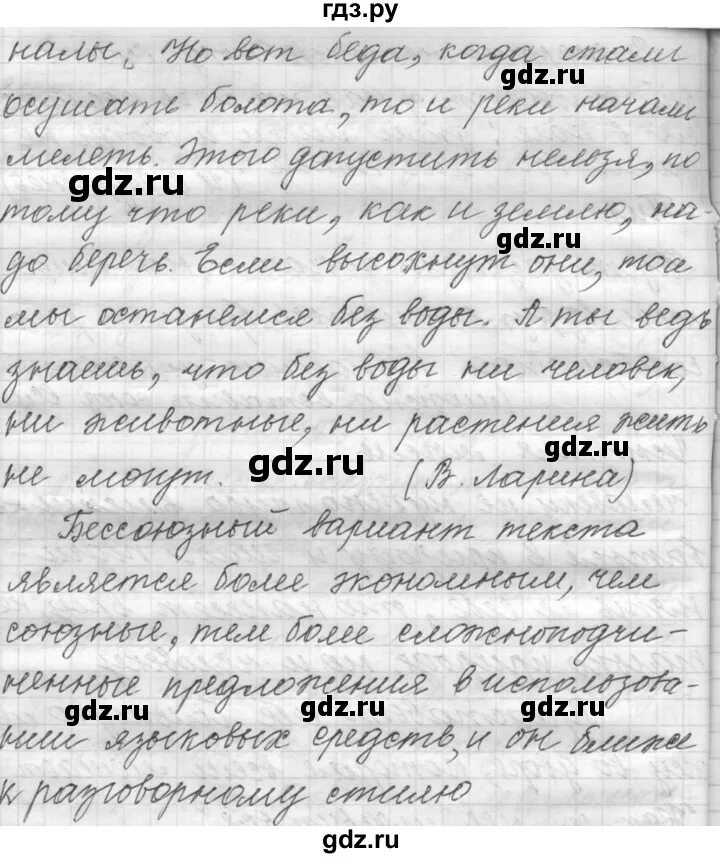 гдз.ру
налы. Но вот беда, когда стали
gdz.ru
осушать болота, то и реки начали
мелеть. Этого допустить нельзя, по
gdz.ru
тому что реки, как и землю, на-
gdz.ru
до беречь. Если высохнут они, то и
мы останемся без воды. А ты ведь
знаешь, что без воды ни человек,
ни животные, ни растения жить
gdz.ru
gdz.ru
не могут. (В. Ларина)
Бессоюзный вариант текста
является более экономным, чем
союзные, тем более сложноподчи-
ненные предложения в использова-
gdz.ru gdz.ru gdz.ru
нии языковых средств, и он ближе
к разговорному стилю
gdz.ru